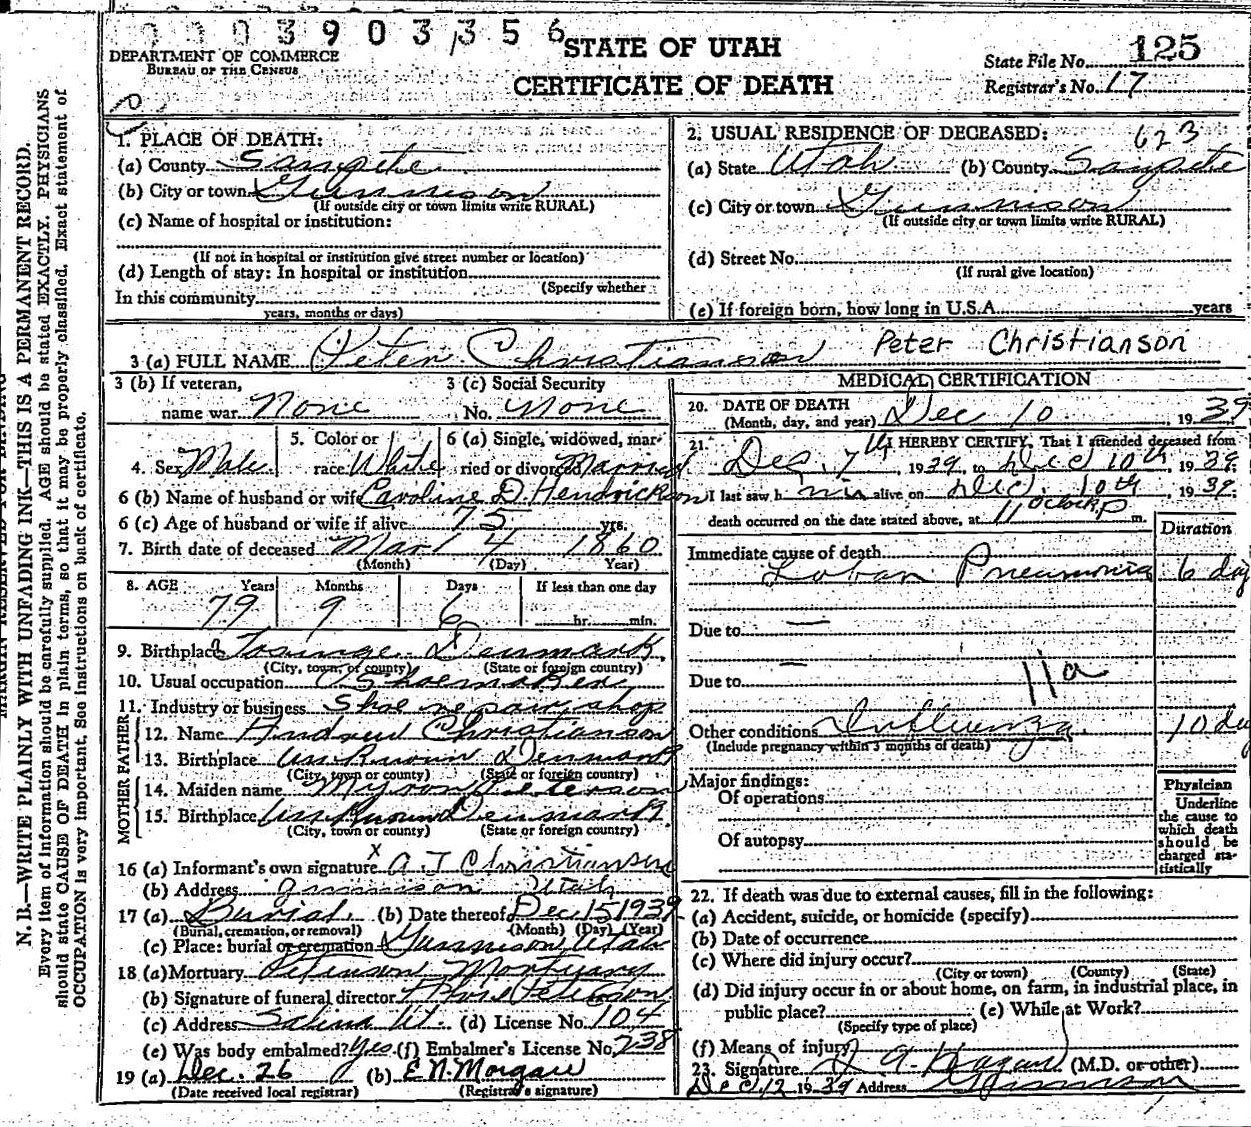 0003903356
DEPARTMENT OF COMMERCE
BUREAU OF THE CENSUS
STATE OF UTAH
CERTIFICATE OF DEATH
State File No. 125
Registrar's No. 17
N. B.—WRITE PLAINLY WITH UNFADING INK—THIS IS A PERMANENT RECORD.
Every item of information should be carefully supplied. AGE should be stated EXACTLY. PHYSICIANS
should state CAUSE OF DEATH in plain terms, so that it may be properly classified. Exact statement of
OCCUPATION is very important. See instructions on back of certificate.
1. PLACE OF DEATH:
(a) County Sanpete
(b) City or town Gunnison
(If outside city or town limits write RURAL)
(c) Name of hospital or institution:
(If not in hospital or institution give street number or location)
(d) Length of stay: In hospital or institution
(Specify whether
In this community
years, months or days)
2. USUAL RESIDENCE OF DECEASED: 623
(a) State Utah (b) County Sanpete
(c) City or town Gunnison
(If outside city or town limits write RURAL)
(d) Street No.
(If rural give location)
(e) If foreign born, how long in U.S.A. years
3 (a) FULL NAME Peter Christianson Peter Christianson
3 (b) If veteran,
name war None
3 (c) Social Security
No. None
4. Sex Male
5. Color or
race White
6 (a) Single, widowed, mar-
ried or divorced Married
6 (b) Name of husband or wife Caroline D. Hendrickson
6 (c) Age of husband or wife if alive 75 yrs.
7. Birth date of deceased Mar 4 1860
(Month) (Day) Year)
8. AGE Years Months Days If less than one day
79 9 6 hr. min.
9. Birthplace Denmark
(City, town, or county) (State or foreign country)
10. Usual occupation Shoemaker
11. Industry or business Shoe repair shop
FATHER
12. Name Andrew Christianson
13. Birthplace Unknown Denmark
(City, town or county) (State or foreign country)
MOTHER
14. Maiden name Peterson
15. Birthplace Unknown Denmark
(City, town or county) (State or foreign country)
16 (a) Informant's own signature x A J Christiansen
(b) Address Gunnison Utah
17 (a) Burial (b) Date thereof Dec 15 1939
(Burial, cremation, or removal) (Month) (Day) (Year)
(c) Place: burial or cremation Gunnison, Utah
18 (a) Mortuary Peterson Mortuary
(b) Signature of funeral director Peterson
(c) Address Salina Ut. (d) License No. 104
(e) Was body embalmed? Yes (f) Embalmer's License No. 238
19 (a) Dec. 26 (b) E N. Morgan
(Date received local registrar) (Registrar's signature)
MEDICAL CERTIFICATION
20. DATE OF DEATH
(Month, day, and year) Dec 10, 1939
21. I HEREBY CERTIFY, That I attended deceased from
Dec. 7th, 1939, to Dec 10th, 1939.
I last saw him alive on Dec. 10th, 1939.
death occurred on the date stated above, at 11 oclock P m.
Duration
Immediate cause of death
Lobar Pneumonia 6 day
Due to —
Due to —
11a
Other conditions Influenza 10 day
(Include pregnancy within 3 months of death)
Major findings:
Of operations
Of autopsy
Physician
Underline
the cause to
which death
should be
charged sta-
tistically
22. If death was due to external causes, fill in the following:
(a) Accident, suicide, or homicide (specify)
(b) Date of occurrence
(c) Where did injury occur?
(City or town) (County) (State)
(d) Did injury occur in or about home, on farm, in industrial place, in
public place? (e) While at Work?
(Specify type of place)
(f) Means of injury
23. Signature Hagan (M.D. or other)
Dec 12 1939 Address Gunnison